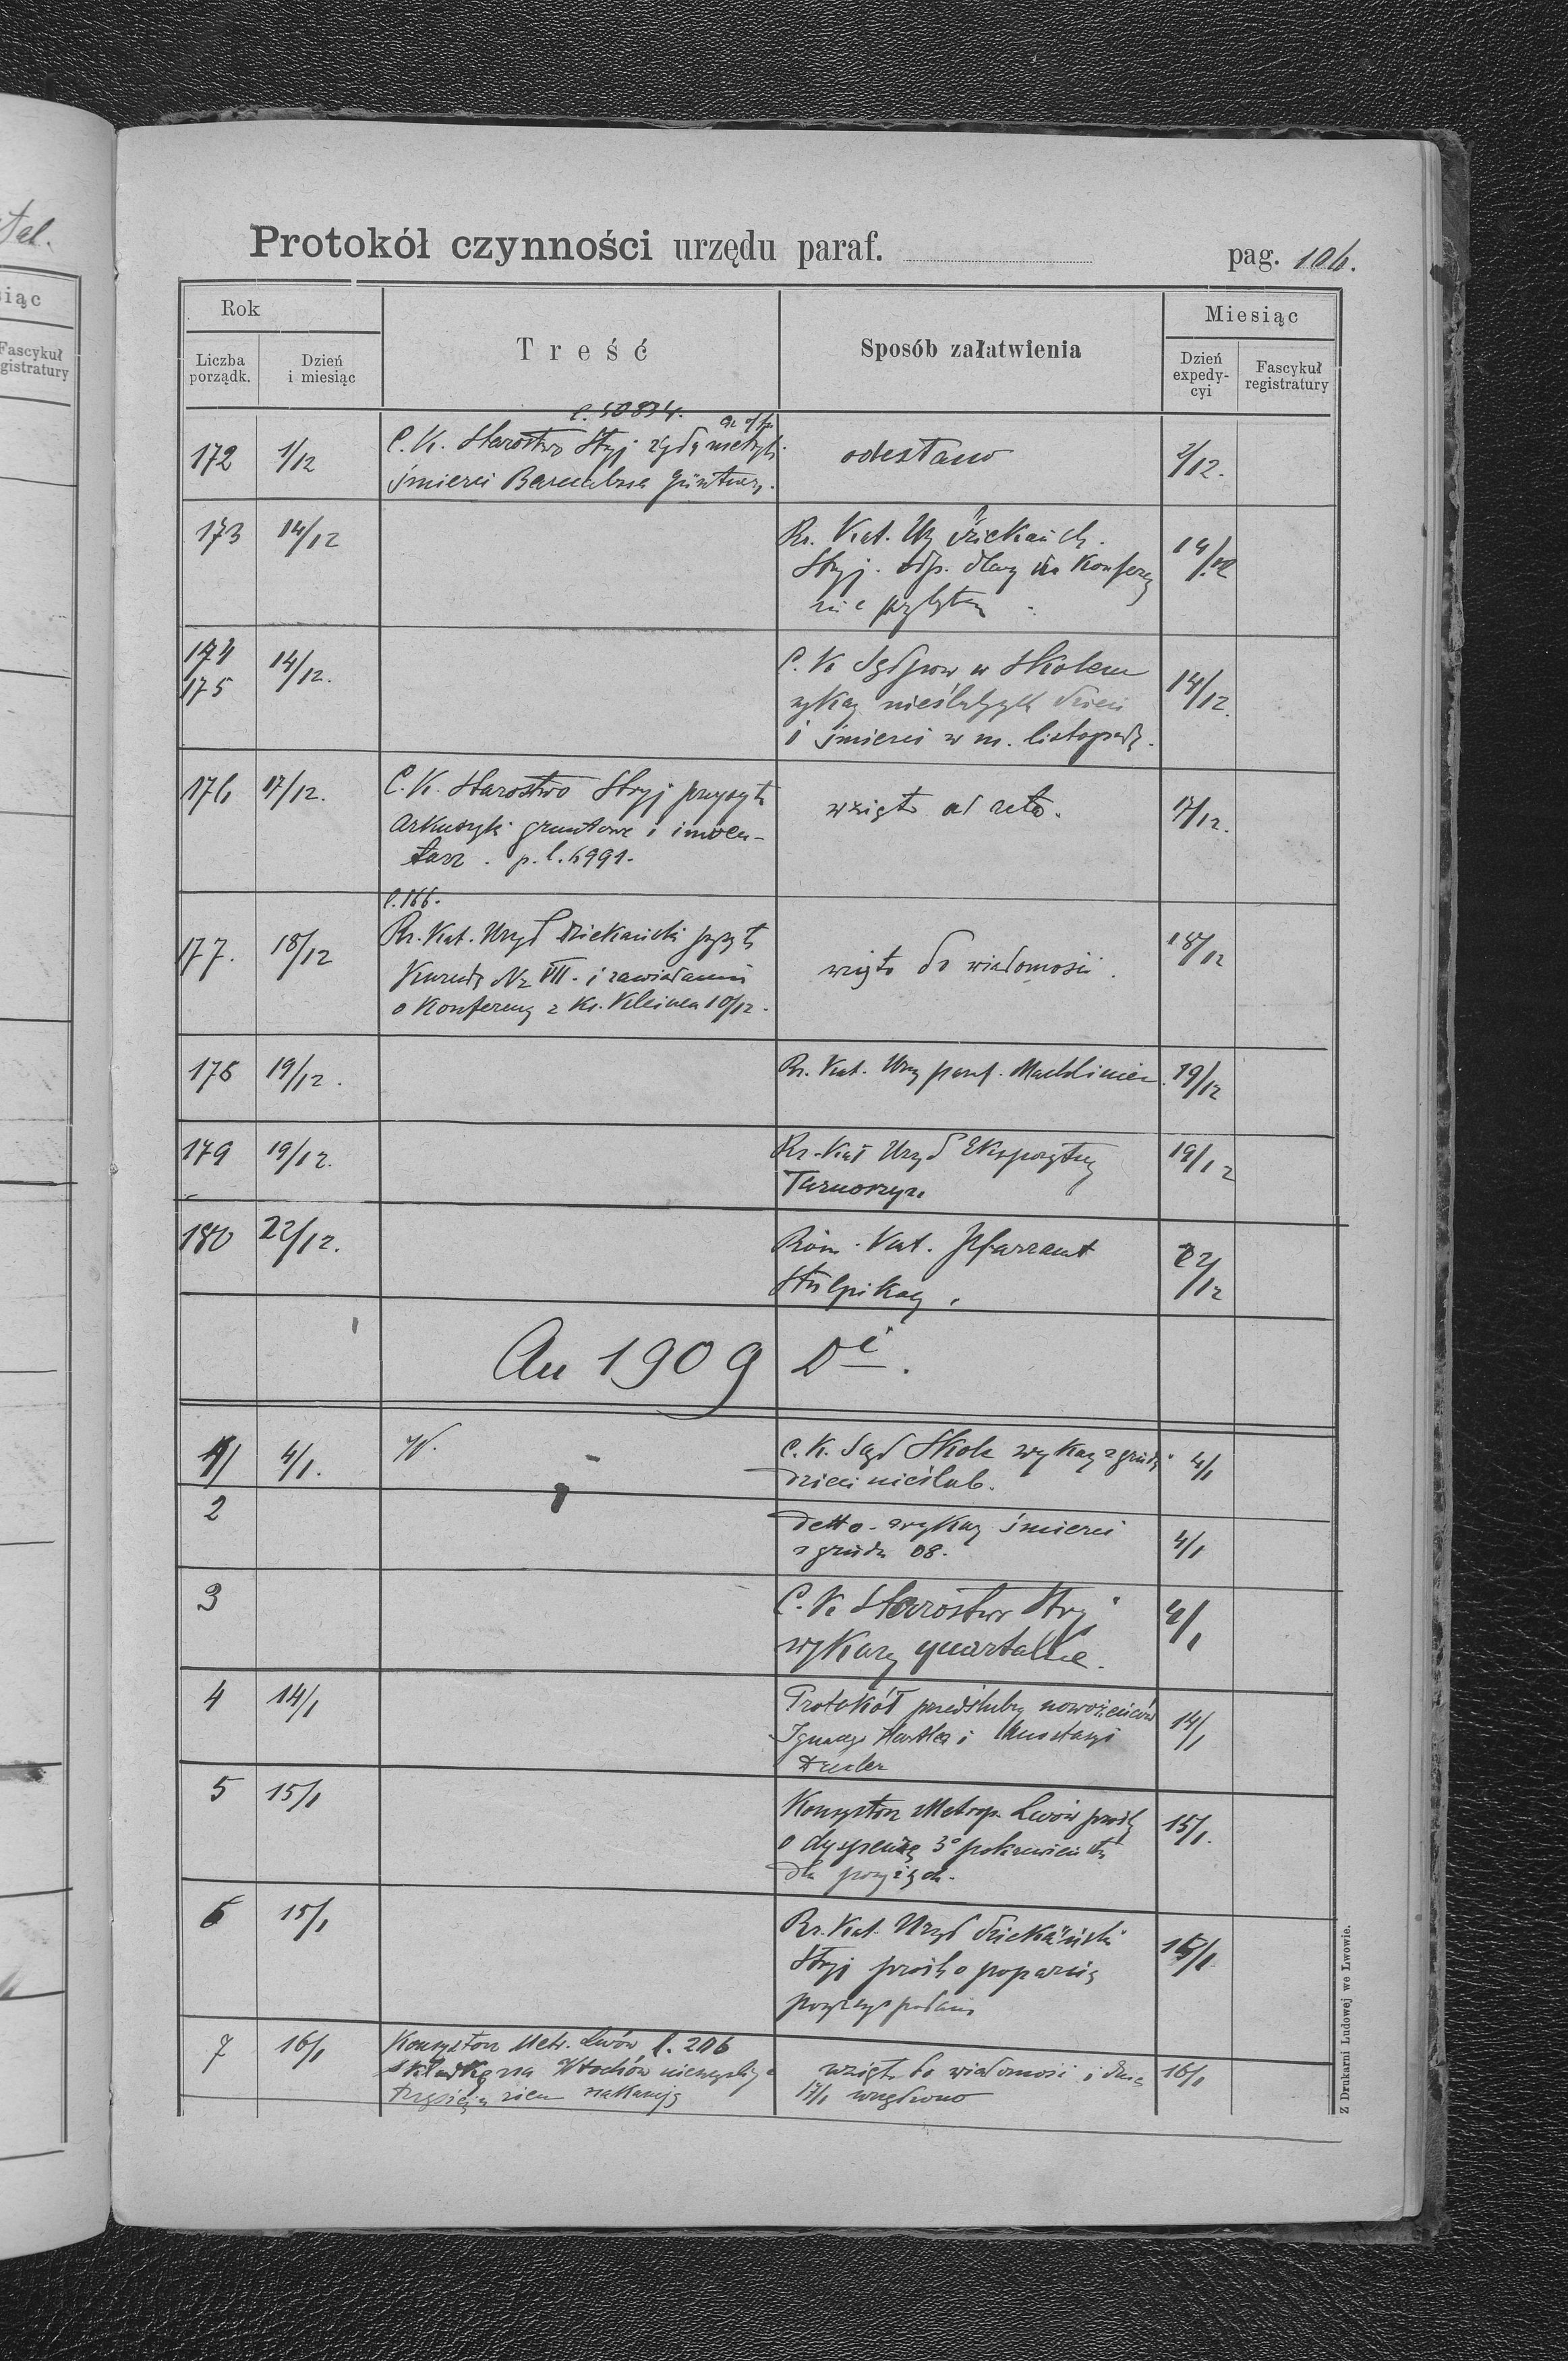 Protokół czynności urzędu paraf.
pag. 106.
Rok
Liczba porządk.
Dzień i miesiąc
Treść
Sposób załatwienia
Miesiąc
Dzień expedy-cyi
Fascykuł registratury
l. 50834.
172 1/12 C. K. Starostwo Stryj żąda metryki odesłano 2/12.
śmierci Barnabasa
173 14/12 Rz. Kat. Urz dziekańsk. 14/12
Stryj. odp.
174 14/12. C. K. Sąd pow w Skolem 14/12.
175 wykaz nieślubnych dzieci
i śmierci w m. listopadz.
176 17/12. C. K. Starostwo Stryj przysyła wzięto ad acta. 17/12.
arkuszyki gruntowe i inwen-
tarz. p. l. 6991.
l. 166.
177. 18/12 Rz. Kat. Urząd Dziekański przysyła wzięto do wiadomości. 18/12
Kurendę Nr VII. i zawiadamia
o Konferency z Ks. Kleinem 10/12.
178 19/12. Rz. Kat. Urz paraf. Machliniec. 19/12
179 19/12. Rz. Kat Urząd Ekspozytury 19/12
180 22/12. Röm. Kat. Pfarramt 22/12
Stulpikany.
An 1909 Di.
1 4/1. C. K. Sąd Skole wykaz z grudz. 4/1
dzieci nieślub.
2 detto. wykaz śmierci 4/1
z grudz 08.
3 C. K. Starostwo Stryj 4/1
wykazy quartalne.
4 14/1 Protokół przedślubny nowożeńców 14/1
Ignacego i Anastazyi
Drexler
5 15/1 Konsystorz Metrop. Lwów prośbę 15/1.
o dyspenzę 3° pokrewieństwa
dla powyższych.
6 15/1 Rz. Kat. Urząd dziekański 15/1
Stryj prośbę o poparcie
powyższego podania
7 16/1 Konsystorz Metr. Lwów l. 206 wzięto do wiadomości i dnia 16/1
składkę na Włochów 17/1 urządzono
trzęsieniem ziemi
Z Drukarni Ludowej we Lwowie.